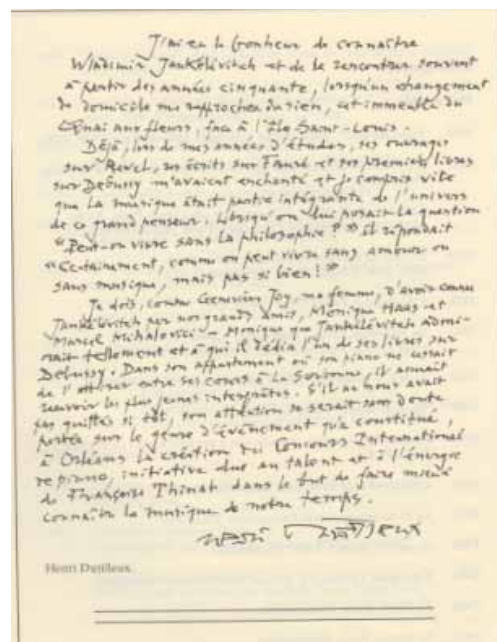 J'ai eu le bonheur de connaître
Wladimir Jankélévitch et de le rencontrer souvent
à partir des années cinquante, lorsqu'un changement
de domicile me rapprocha du sien, cet immeuble du
Quai aux fleurs, face à l'Île Saint-Louis.
Déjà, lors de mes années d'études, ses ouvrages
sur Ravel, ses écrits sur Fauré et ses premiers livres
sur Debussy m'avaient enchanté et je compris vite
que la musique était partie intégrante de l'univers
de ce grand penseur. Lorsqu'on lui posait la question
"Peut-on vivre sans la philosophie ?" il répondait
"Certainement, comme on peut vivre sans amour ou
sans musique, mais pas si bien !"
Je dois, comme Geneviève Joy, ma femme, d'avoir connu
Jankélévitch par nos grands amis, Monique Haas et
Marcel Mihalovici - Monique que Jankélévitch admi-
rait tellement et à qui il dédia l'un de ses livres sur
Debussy. Dans son appartement où son piano ne cessait
de l'attirer entre ses cours à la Sorbonne, il aimait
recevoir les plus jeunes interprètes. S'il ne nous avait
pas quittés si tôt, son attention se serait sans doute
portée sur le genre d'évènement qu'a constitué,
à Orléans la création du Concours International
de piano, initiative due au talent et à l'énergie
de Françoise Thinat dans le but de faire mieux
connaître la musique de notre temps.
Henri Dutilleux
Henri Dutilleux